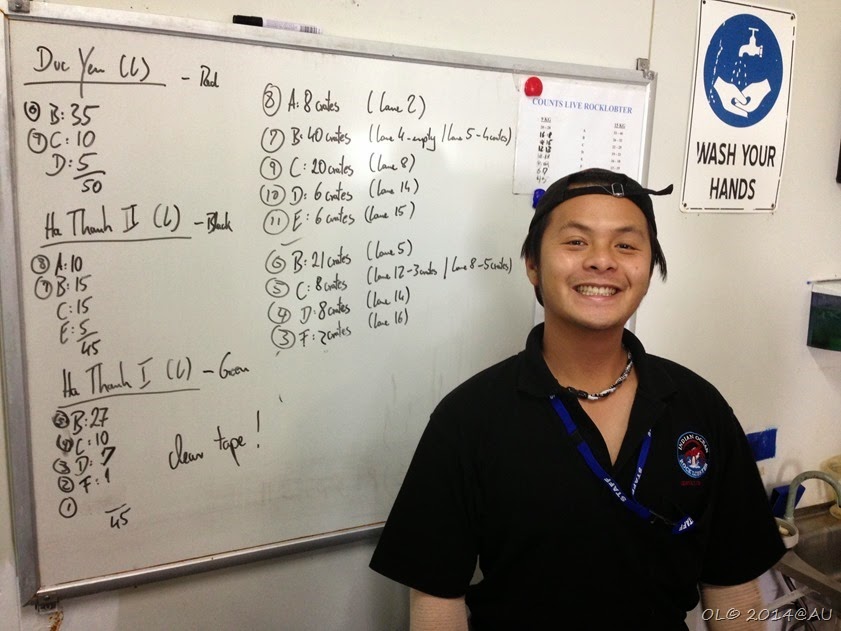 Duc Yen (L) - Red
⑧ B: 35
⑦ C: 10
D: 5
50
Ha Thanh II (L) - Black
⑧ A: 10
⑦ B: 15
C: 15
E: 5
45
Ha Thanh I (L) - Green
⑤ B: 27
④ C: 10
③ D: 7
② F: 1
①
45
clear tape!
⑧ A: 8 crates (lane 2)
⑦ B: 40 crates (lane 4-empty / lane 5-4 crates)
⑨ C: 20 crates (lane 8)
⑩ D: 6 crates (lane 14)
⑪ E: 6 crates (lane 15)
⑥ B: 21 crates (lane 5)
⑤ C: 8 crates (lane 12-3 crates / lane 8-5 crates)
④ D: 8 crates (lane 14)
③ F: 2 crates (lane 16)
COUNTS LIVE ROCKLOBTER
WASH YOUR
HANDS
INDIAN OCEAN
ROCK LOBSTER
STAFF
STAFF
OL© 2014@AU